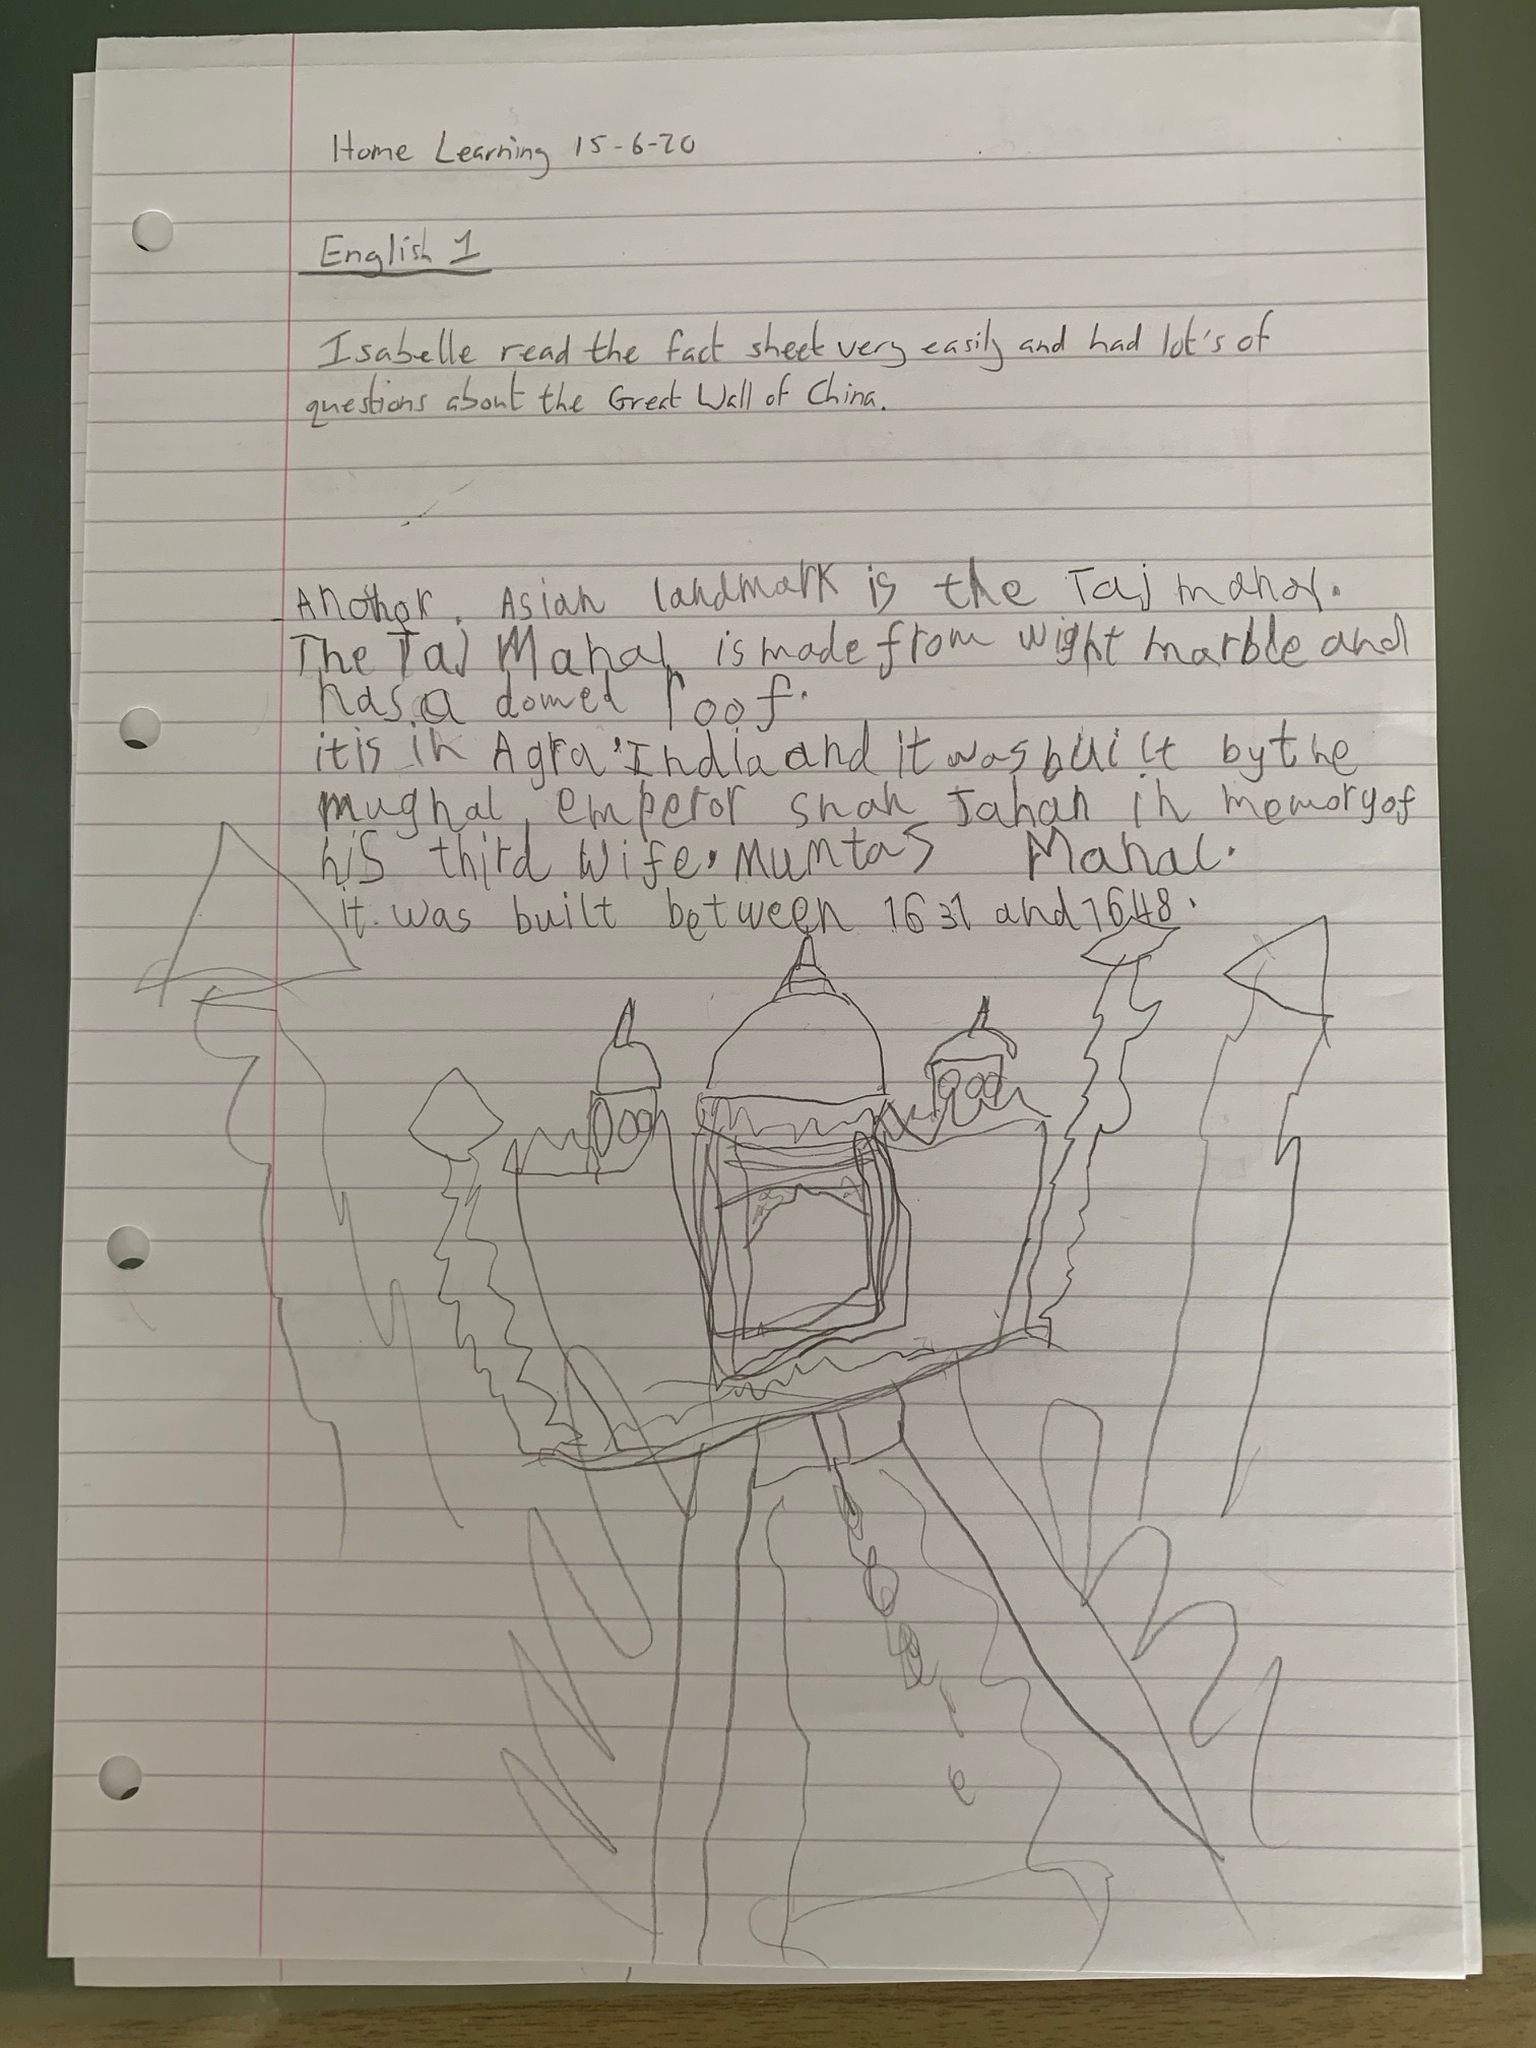 Home Learning 15-6-20
English 1
Isabelle read the fact sheet very easily and had lot's of
questions about the Great Wall of China.
Anothor. Asian landmark is the Taj mahal.
The Taj Mahal is made from wight marble and
has a domed roof.
it is in Agra, India and it was built by the
mughal emperor shah Jahan in memory of
his third wife, Mumtas Mahal.
it was built between 1631 and 1648.